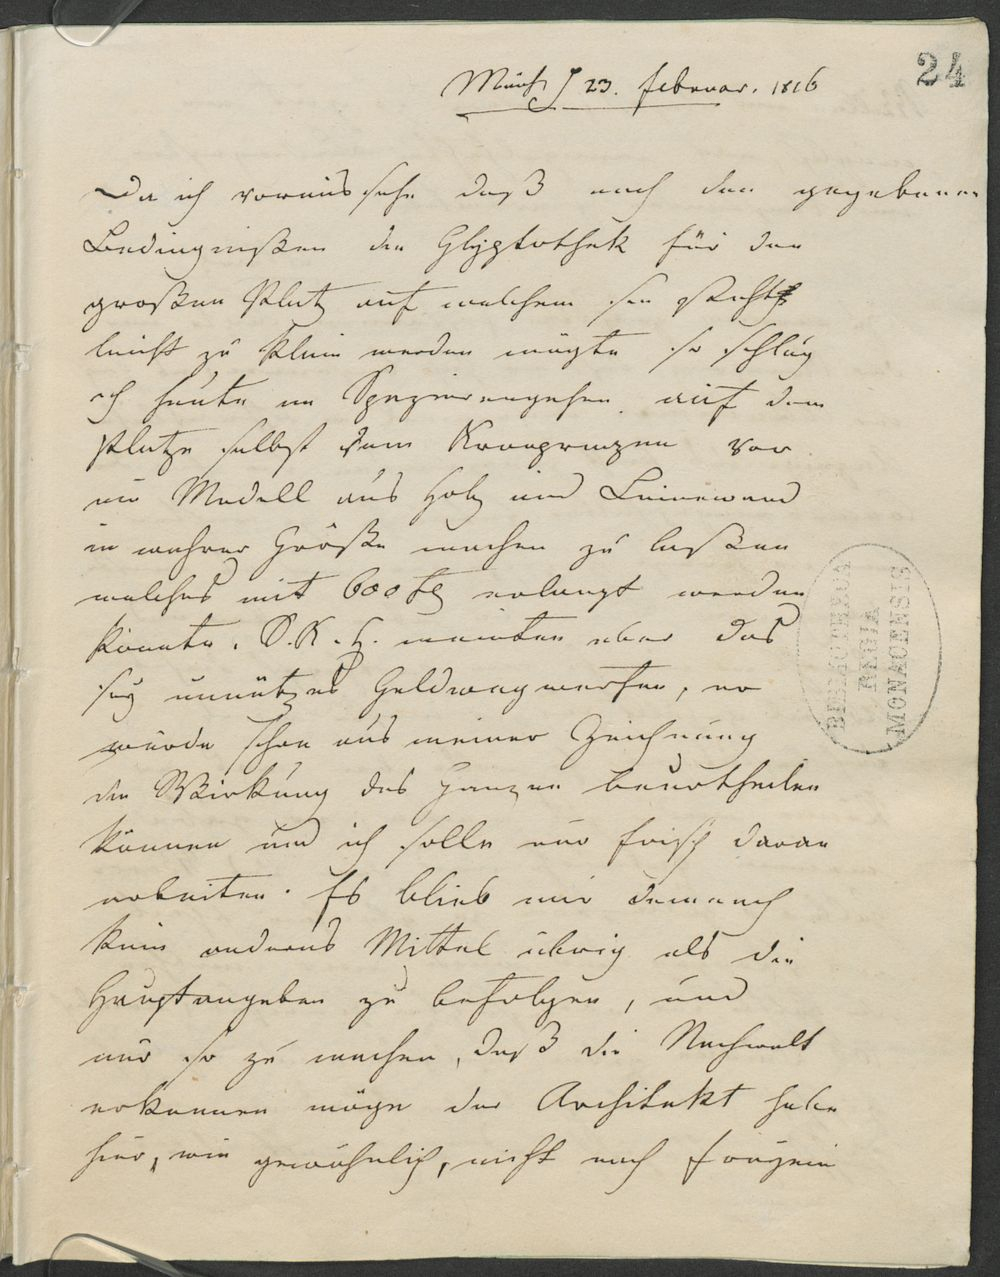 24
Münch. d 23. Februar. 1816
Da ich voraus sehe daß nach den gegebenen
Bedingnißen die Glyptothek für den
großen Platz auf welchem sie steht
leicht zu klein werden mögte so schlug
ich heute im Spazierengehen auf dem
Platze selbst dem Kronprinzen vor
ein Modell aus Holz und Leinewand
in wahrer Größe machen zu laßen
welches mit 600 fl erlangt werden
könnte. S. K. H. meinten aber das
sey unnützes Geldwegwerfen, er
würde schon aus meiner Zeichnung
die Wirkung des Ganzen beurtheilen
können und ich solle nur frisch daran
arbeiten. Es blieb mir demnach
kein anderes Mittel übrig als die
Hauptangaben zu befolgen, und
nur so zu machen, daß die Nachwelt
erkennen möge der Architekt habe
hier, wie gewöhnlich, nicht nach
BIBLIOTHECA
REGIA
MONACENSIS